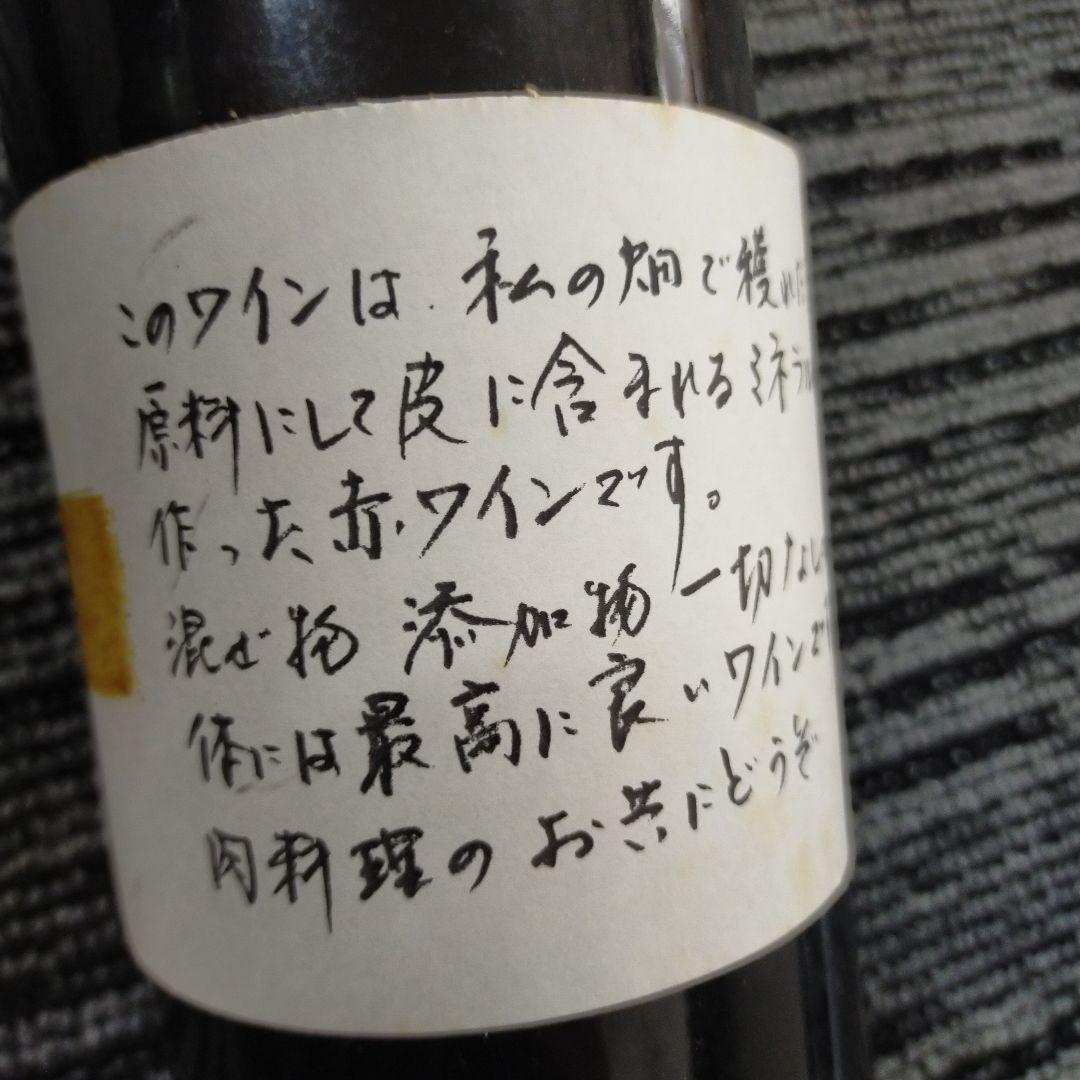 このワインは、私の畑で獲れた
原料にして皮に含まれるミネラル
作った赤ワインです。
混ぜ物 添加物 一切なし
体には最高に良いワインで
肉料理のお共にどうぞ